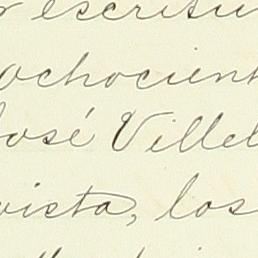 escritu
ochocient
José Villel
vista, los